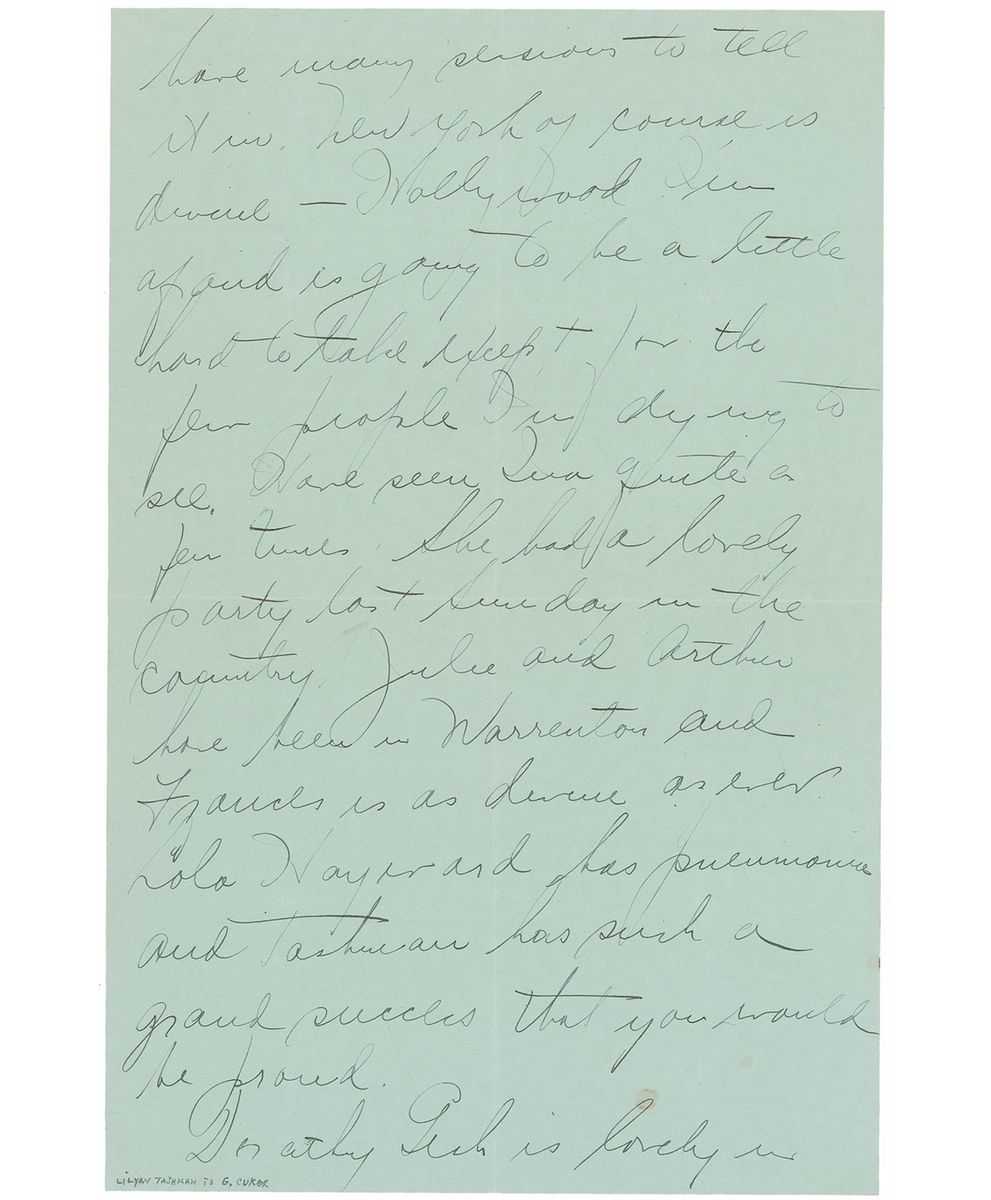 have many sessions to tell
it in. New York of course is
divine — Hollywood I'm
afraid is going to be a little
hard to take except for the
few people I'm dying to
see. Have seen Ina quite a
few times. She had a lovely
party last Sunday in the
country. Julie and Arthur
have been in Warrenton and
Frances is as divine as ever
Lola Hayward has pneumonia
and Tashman has such a
grand success that you would
be proud.
Dorothy Gish is lovely in
LILYAN TASHMAN TO G. CUKOR